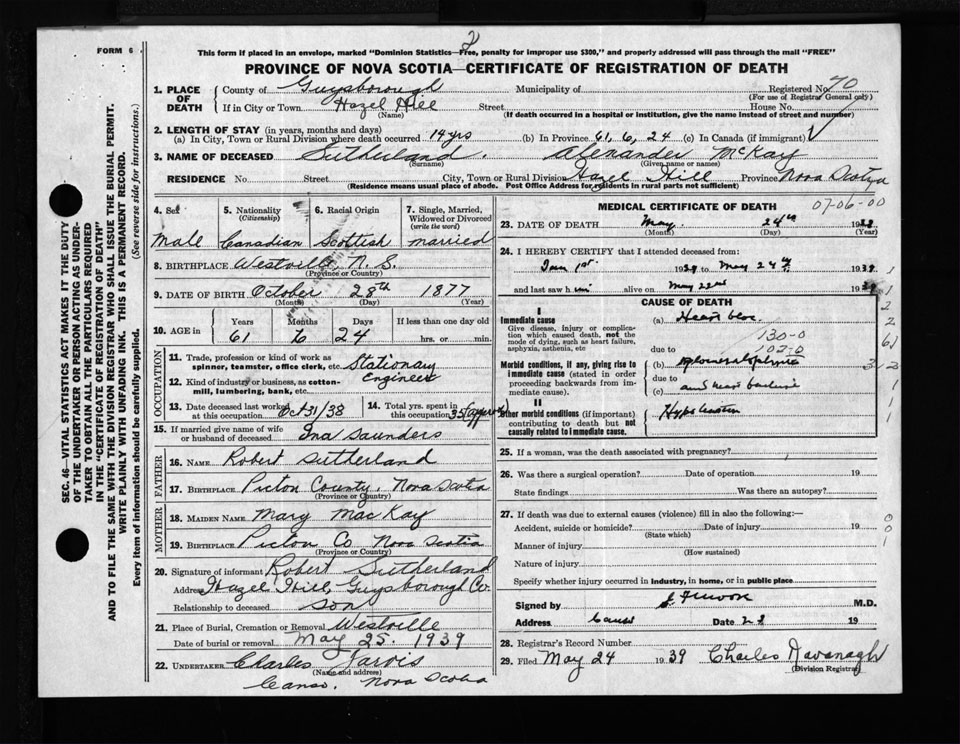 2
FORM 6
This form if placed in an envelope, marked "Dominion Statistics—Free, penalty for improper use $300," and properly addressed will pass through the mail "FREE"
PROVINCE OF NOVA SCOTIA—CERTIFICATE OF REGISTRATION OF DEATH
1. PLACE OF DEATH
County of Guysborough Municipality of Registered No. 70
(For use of Registrar General only)
If in City or Town Hazel Hill Street House No.
(Name) (If death occurred in a hospital or institution, give the name instead of street and number)
2. LENGTH OF STAY (in years, months and days)
(a) In City, Town or Rural Division where death occurred 14 yrs (b) In Province 61, 6, 24 (c) In Canada (if immigrant)
3. NAME OF DECEASED Sutherland. Alexander McKay
(Surname) (Given name or names)
RESIDENCE No. Street City, Town or Rural Division Hazel Hill Province Nova Scotia
(Residence means usual place of abode. Post Office Address for residents in rural parts not sufficient)
07-06-00
4. Sex 5. Nationality (Citizenship) 6. Racial Origin 7. Single, Married, Widowed or Divorced (write the word)
Male Canadian Scottish married
8. BIRTHPLACE Westville, N. S.
(Province or Country)
9. DATE OF BIRTH October 28th 1877
(Month) (Day) (Year)
10. AGE in Years Months Days If less than one day old
61 6 24 hrs. or min.
OCCUPATION
11. Trade, profession or kind of work as spinner, teamster, office clerk, etc. Stationary
Engineer
12. Kind of industry or business, as cotton-mill, lumbering, bank, etc.
13. Date deceased last worked at this occupation Oct 31/38 14. Total yrs. spent in this occupation 35 (approx)
15. If married give name of wife or husband of deceased Ina Saunders
FATHER
16. NAME Robert Sutherland
17. BIRTHPLACE Pictou County, Nova Scotia
(Province or Country)
MOTHER
18. MAIDEN NAME Mary MacKay
19. BIRTHPLACE Pictou Co Nova Scotia
(Province or Country)
20. Signature of informant Robert Sutherland
Address Hazel Hill, Guysborough Co.
Relationship to deceased son
21. Place of Burial, Cremation or Removal Westville
Date of burial or removal May 25. 1939
22. UNDERTAKER Charles Jarvis
(Name and address)
Canso, Nova Scotia
MEDICAL CERTIFICATE OF DEATH
23. DATE OF DEATH May 24th 1939
(Month) (Day) (Year)
24. I HEREBY CERTIFY that I attended deceased from:
Jan 1st 1939 to May 24th 1939
and last saw him alive on May 22nd 1939
CAUSE OF DEATH
I
Immediate cause (a) Heart bloc.
Give disease, injury or complication which caused death, not the mode of dying, such as heart failure, asphyxia, asthenia, etc
130-0
due to 102-6
Morbid conditions, if any, giving rise to immediate cause (stated in order proceeding backwards from immediate cause). (b)
due to
and heart
(c)
II
Other morbid conditions (if important) contributing to death but not causally related to immediate cause.
25. If a woman, was the death associated with pregnancy?
26. Was there a surgical operation? Date of operation 19
State findings Was there an autopsy?
27. If death was due to external causes (violence) fill in also the following:—
Accident, suicide or homicide? Date of injury 19
(State which)
Manner of injury
(How sustained)
Nature of injury
Specify whether injury occurred in industry, in home, or in public place
Signed by M.D.
Address Canso Date 19
28. Registrar's Record Number
29. Filed May 24 1939 Charles Kavanagh
(Division Registrar)
SEC. 46—VITAL STATISTICS ACT MAKES IT THE DUTY
OF THE UNDERTAKER OR PERSON ACTING AS UNDER-
TAKER TO OBTAIN ALL THE PARTICULARS REQUIRED
IN THE "CERTIFICATE OF REGISTRATION OF DEATH"
AND TO FILE THE SAME WITH THE DIVISION REGISTRAR WHO SHALL ISSUE THE BURIAL PERMIT.
WRITE PLAINLY WITH UNFADING INK. THIS IS A PERMANENT RECORD.
Every item of information should be carefully supplied. (See reverse side for instructions.)